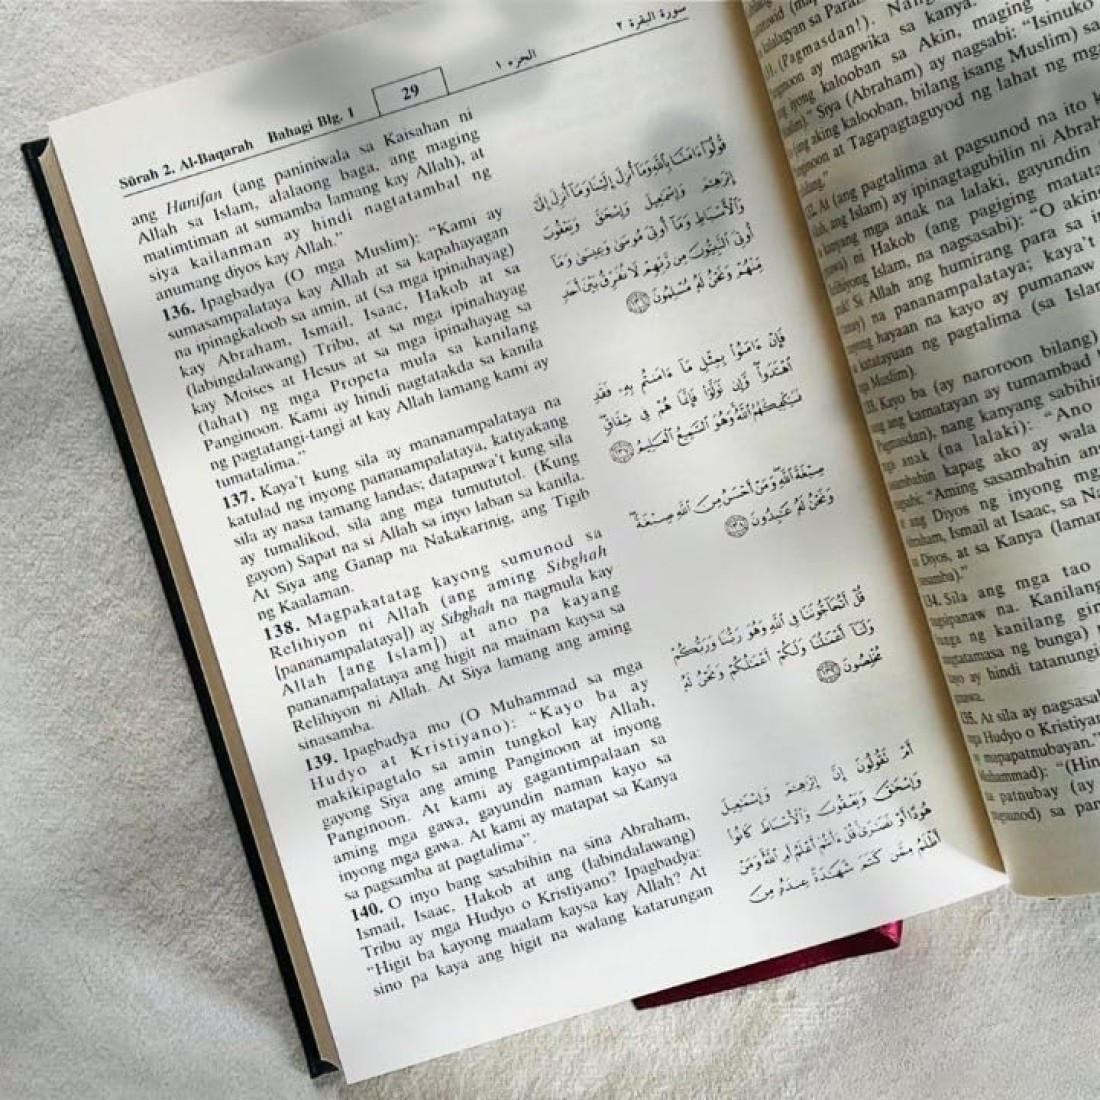 Sûrah 2. Al-Baqarah Bahagi Blg. 1
29
الجزء ١
سورة البقرة ٢
ang Hanifan (ang paniniwala sa Kaisahan ni
Allah sa Islam, alalaong baga, ang maging
matimtiman at sumamba lamang kay Allah), at
siya kailanman ay hindi nagtatambal ng
anumang diyos kay Allah."
136. Ipagbadya (O mga Muslim): "Kami ay
sumasampalataya kay Allah at sa kapahayagan
na ipinagkaloob sa amin, at (sa mga ipinahayag)
kay Abraham, Ismail, Isaac, Hakob at sa
(labingdalawang) Tribu, at sa mga ipinahayag
kay Moises at Hesus at sa mga ipinahayag sa
(lahat) ng mga Propeta mula sa kanilang
Panginoon. Kami ay hindi nagtatakda sa kanila
ng pagtatangi-tangi at kay Allah lamang kami ay
tumatalima."
137. Kaya't kung sila ay mananampalataya na
katulad ng inyong pananampalataya, katiyakang
sila ay nasa tamang landas; datapuwa't kung sila
ay tumalikod, sila ang mga tumututol. (Kung
gayon) Sapat na si Allah sa inyo laban sa kanila.
At Siya ang Ganap na Nakakarinig, ang Tigib
ng Kaalaman.
138. Magpakatatag kayong sumunod sa
Relihiyon ni Allah (ang aming Sibghah
[pananampalataya]) ay Sibghah na nagmula kay
Allah [ang Islam]) at ano pa kayang
pananampalataya ang higit na mainam kaysa sa
Relihiyon ni Allah. At Siya lamang ang aming
sinasamba.
139. Ipagbadya mo (O Muhammad sa mga
Hudyo at Kristiyano): "Kayo ba ay
makikipagtalo sa amin tungkol kay Allah,
gayong Siya ang aming Panginoon at inyong
Panginoon. At kami ay gagantimpalaan sa
aming mga gawa, gayundin naman kayo sa
inyong mga gawa. At kami ay matapat sa Kanya
sa pagsamba at pagtalima".
140. O inyo bang sasabihin na sina Abraham,
Ismail, Isaac, Hakob at ang (labindalawang)
Tribu ay mga Hudyo o Kristiyano? Ipagbadya:
"Higit ba kayong maalam kaysa kay Allah? At
sino pa kaya ang higit na walang katarungan
قُولُوٓا۟ ءَامَنَّا بِٱللَّهِ وَمَآ أُنزِلَ إِلَيْنَا وَمَآ أُنزِلَ إِلَىٰٓ
إِبْرَٰهِـۧمَ وَإِسْمَٰعِيلَ وَإِسْحَٰقَ وَيَعْقُوبَ
وَٱلْأَسْبَاطِ وَمَآ أُوتِىَ مُوسَىٰ وَعِيسَىٰ وَمَآ
أُوتِىَ ٱلنَّبِيُّونَ مِن رَّبِّهِمْ لَا نُفَرِّقُ بَيْنَ أَحَدٍ
مِّنْهُمْ وَنَحْنُ لَهُۥ مُسْلِمُونَ ١٣٦
فَإِنْ ءَامَنُوا۟ بِمِثْلِ مَآ ءَامَنتُم بِهِۦ فَقَدِ
ٱهْتَدَوا۟ وَّإِن تَوَلَّوْا۟ فَإِنَّمَا هُمْ فِى شِقَاقٍ
فَسَيَكْفِيكَهُمُ ٱللَّهُ وَهُوَ ٱلسَّمِيعُ ٱلْعَلِيمُ ١٣٧
صِبْغَةَ ٱللَّهِ وَمَنْ أَحْسَنُ مِنَ ٱللَّهِ صِبْغَةً
وَنَحْنُ لَهُۥ عَٰبِدُونَ ١٣٨
قُلْ أَتُحَآجُّونَنَا فِى ٱللَّهِ وَهُوَ رَبُّنَا وَرَبُّكُمْ
وَلَنَآ أَعْمَٰلُنَا وَلَكُمْ أَعْمَٰلُكُمْ وَنَحْنُ لَهُۥ
مُخْلِصُونَ ١٣٩
أَمْ تَقُولُونَ إِنَّ إِبْرَٰهِـۧمَ وَإِسْمَٰعِيلَ
وَإِسْحَٰقَ وَيَعْقُوبَ وَٱلْأَسْبَاطَ كَانُوا۟
هُودًا أَوْ نَصَٰرَىٰ قُلْ ءَأَنتُمْ أَعْلَمُ أَمِ ٱللَّهُ وَمَنْ
أَظْلَمُ مِمَّن كَتَمَ شَهَٰدَةً عِندَهُۥ مِنَ
(Pagmasdan!). Nang
ay magwika sa kanya.
kalooban sa Akin, maging
Siya (Abraham) ay nagsabi: "Isinuko
aking kalooban, bilang isang Muslim) sa
at Tagapagtaguyod ng lahat ng mga
At (ang pagtalima at pagsunod na ito k
ang Islam) ay ipinagtagubilin ni Abrah
mga anak na lalaki, gayundin
ni Hakob (ang pagiging matata
Islam, na nagsasabi): "O aking
Si Allah ang humirang para sa in
na pananampalataya; kaya't
hayaan na kayo ay pumanaw
ng pagtalima (sa Islam
Muslim).
Kayo ba (ay naroroon bilang)
ang kamatayan ay tumambad
nang kanyang sabihin
anak (na lalaki): "Ano
kapag ako ay wala
"Aming sasambahin an
ang Diyos ng inyong mg
Ismail at Isaac, sa Na
Diyos, at sa Kanya (laman
134. Sila ang mga tao
na. Kanilang
ng kanilang gin
ng bunga)
ay hindi tatanungi
135. At sila ay nagsasab
Hudyo o Kristiyano
mapapatnubayan."
"(Hin
patnubay (ay
sa pan